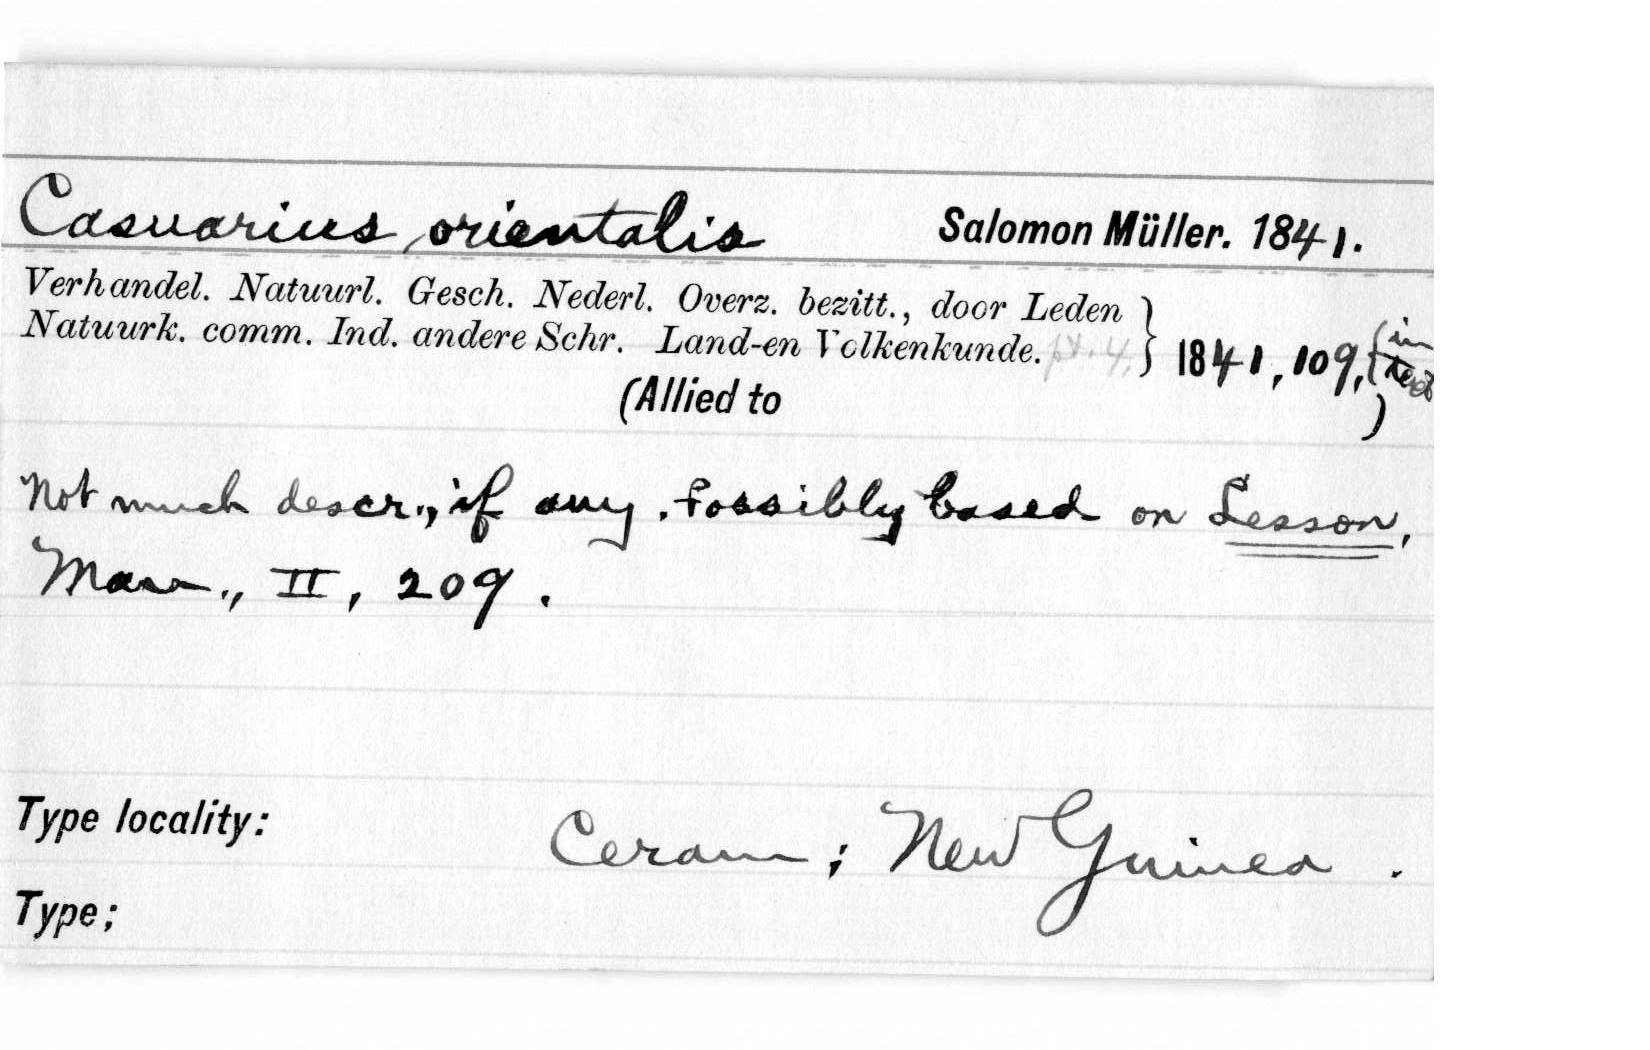 Casuarius orientalis Salomon Müller. 1841.
Verhandel. Natuurl. Gesch. Nederl. Overz. bezitt., door Leden
Natuurk. comm. Ind. andere Schr. Land-en Volkenkunde. pt. 4, } 1841, 109, (in text
(Allied to )
Not much descr., if any. Possibly based on Lesson,
Man., II, 209.
Type locality: Ceram; New Guinea.
Type;